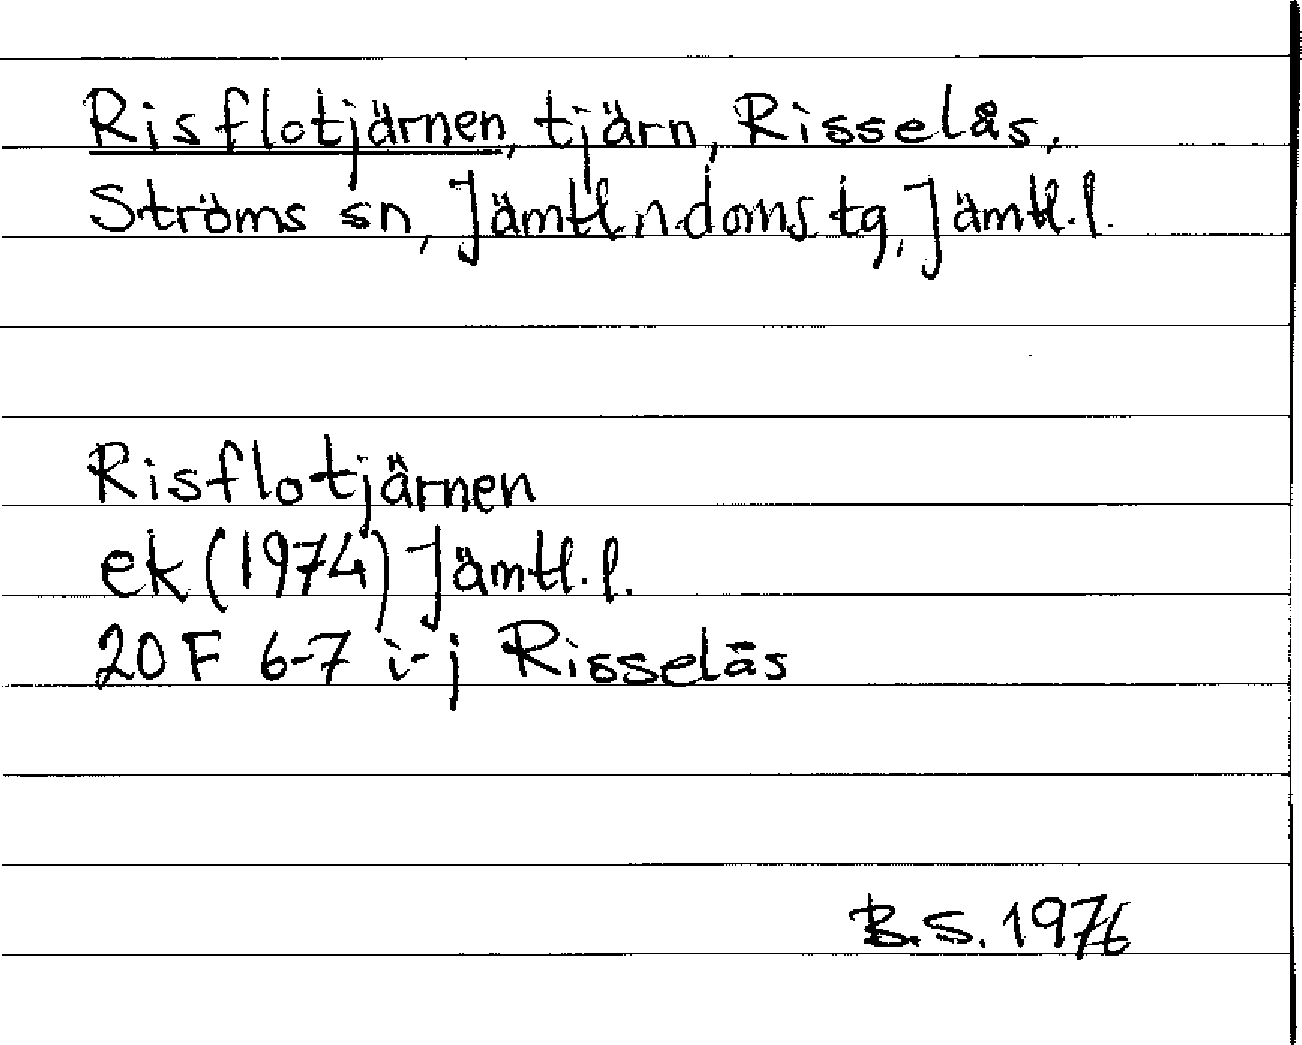 Risflotjärnen, tjärn, Risselås,
Ströms sn, Jämtl.n.domstg, Jämtl.l.
Risflotjärnen
ek (1974) Jämtl.l.
20 F 6-7 i-j Risselås
B.S. 1976